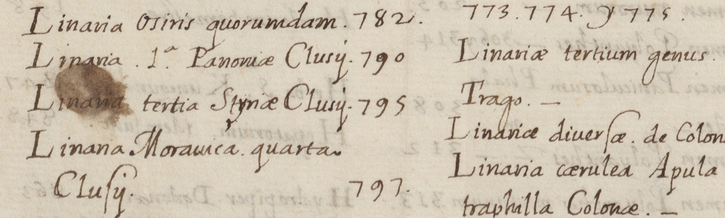 Linaria Osiris quorumdam. 782.
Linaria. 1.a Panoniæ Clusij. 790
Linaria tertia Styriæ Clusij. 795
Linaria Morauica. quarta.
Clusij. 797.
773. 774. y 775.
Linariæ tertium genus.
Trago. —
Linariæ diuersæ. de Colon
Linaria cærulea Apula
traphilla Colonæ. —